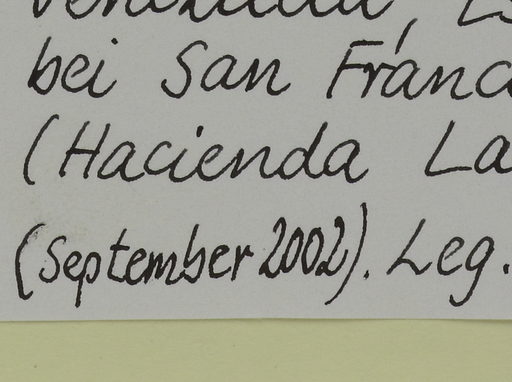 Venezuela,
bei San Franc
(Hacienda La
(September 2002). Leg.